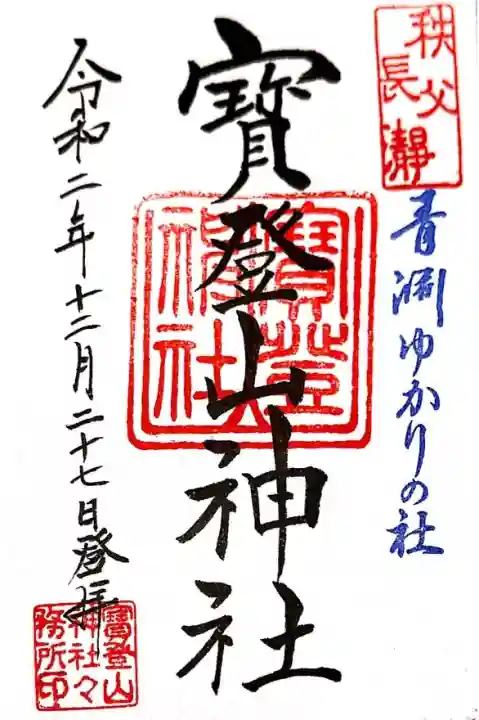 秩父
長瀞
青淵ゆかりの社
寳登山神社
寳登山
神社
令和二年十二月二十七日登拝
寳登山
神社々
務所印